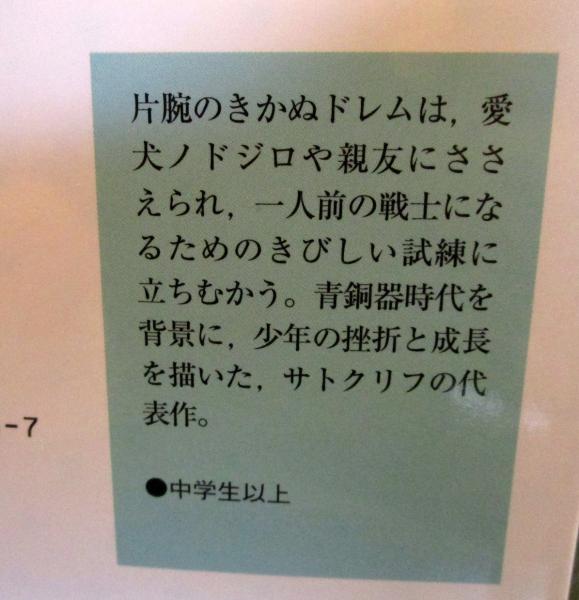 片腕のきかぬドレムは，愛
犬ノドジロや親友にささ
えられ，一人前の戦士にな
るためのきびしい試練に
立ちむかう。青銅器時代を
背景に，少年の挫折と成長
を描いた，サトクリフの代
表作。
-7
●中学生以上